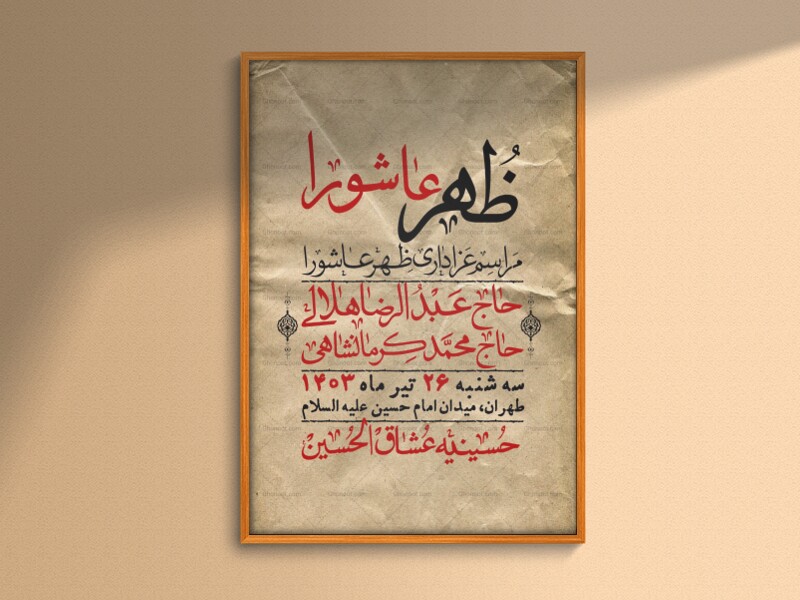 ظُهر عاشورا
مراسم عزاداری ظهر عاشورا
حاج عَبْدُالرضا هلالی
حاج محمّد کرمانشاهی
سه شنبه ۲۶ تیر ماه ۱۴۰۳
طهران، میدان امام حسین علیه السلام
حُسینیّه عُشّاق الحُسین